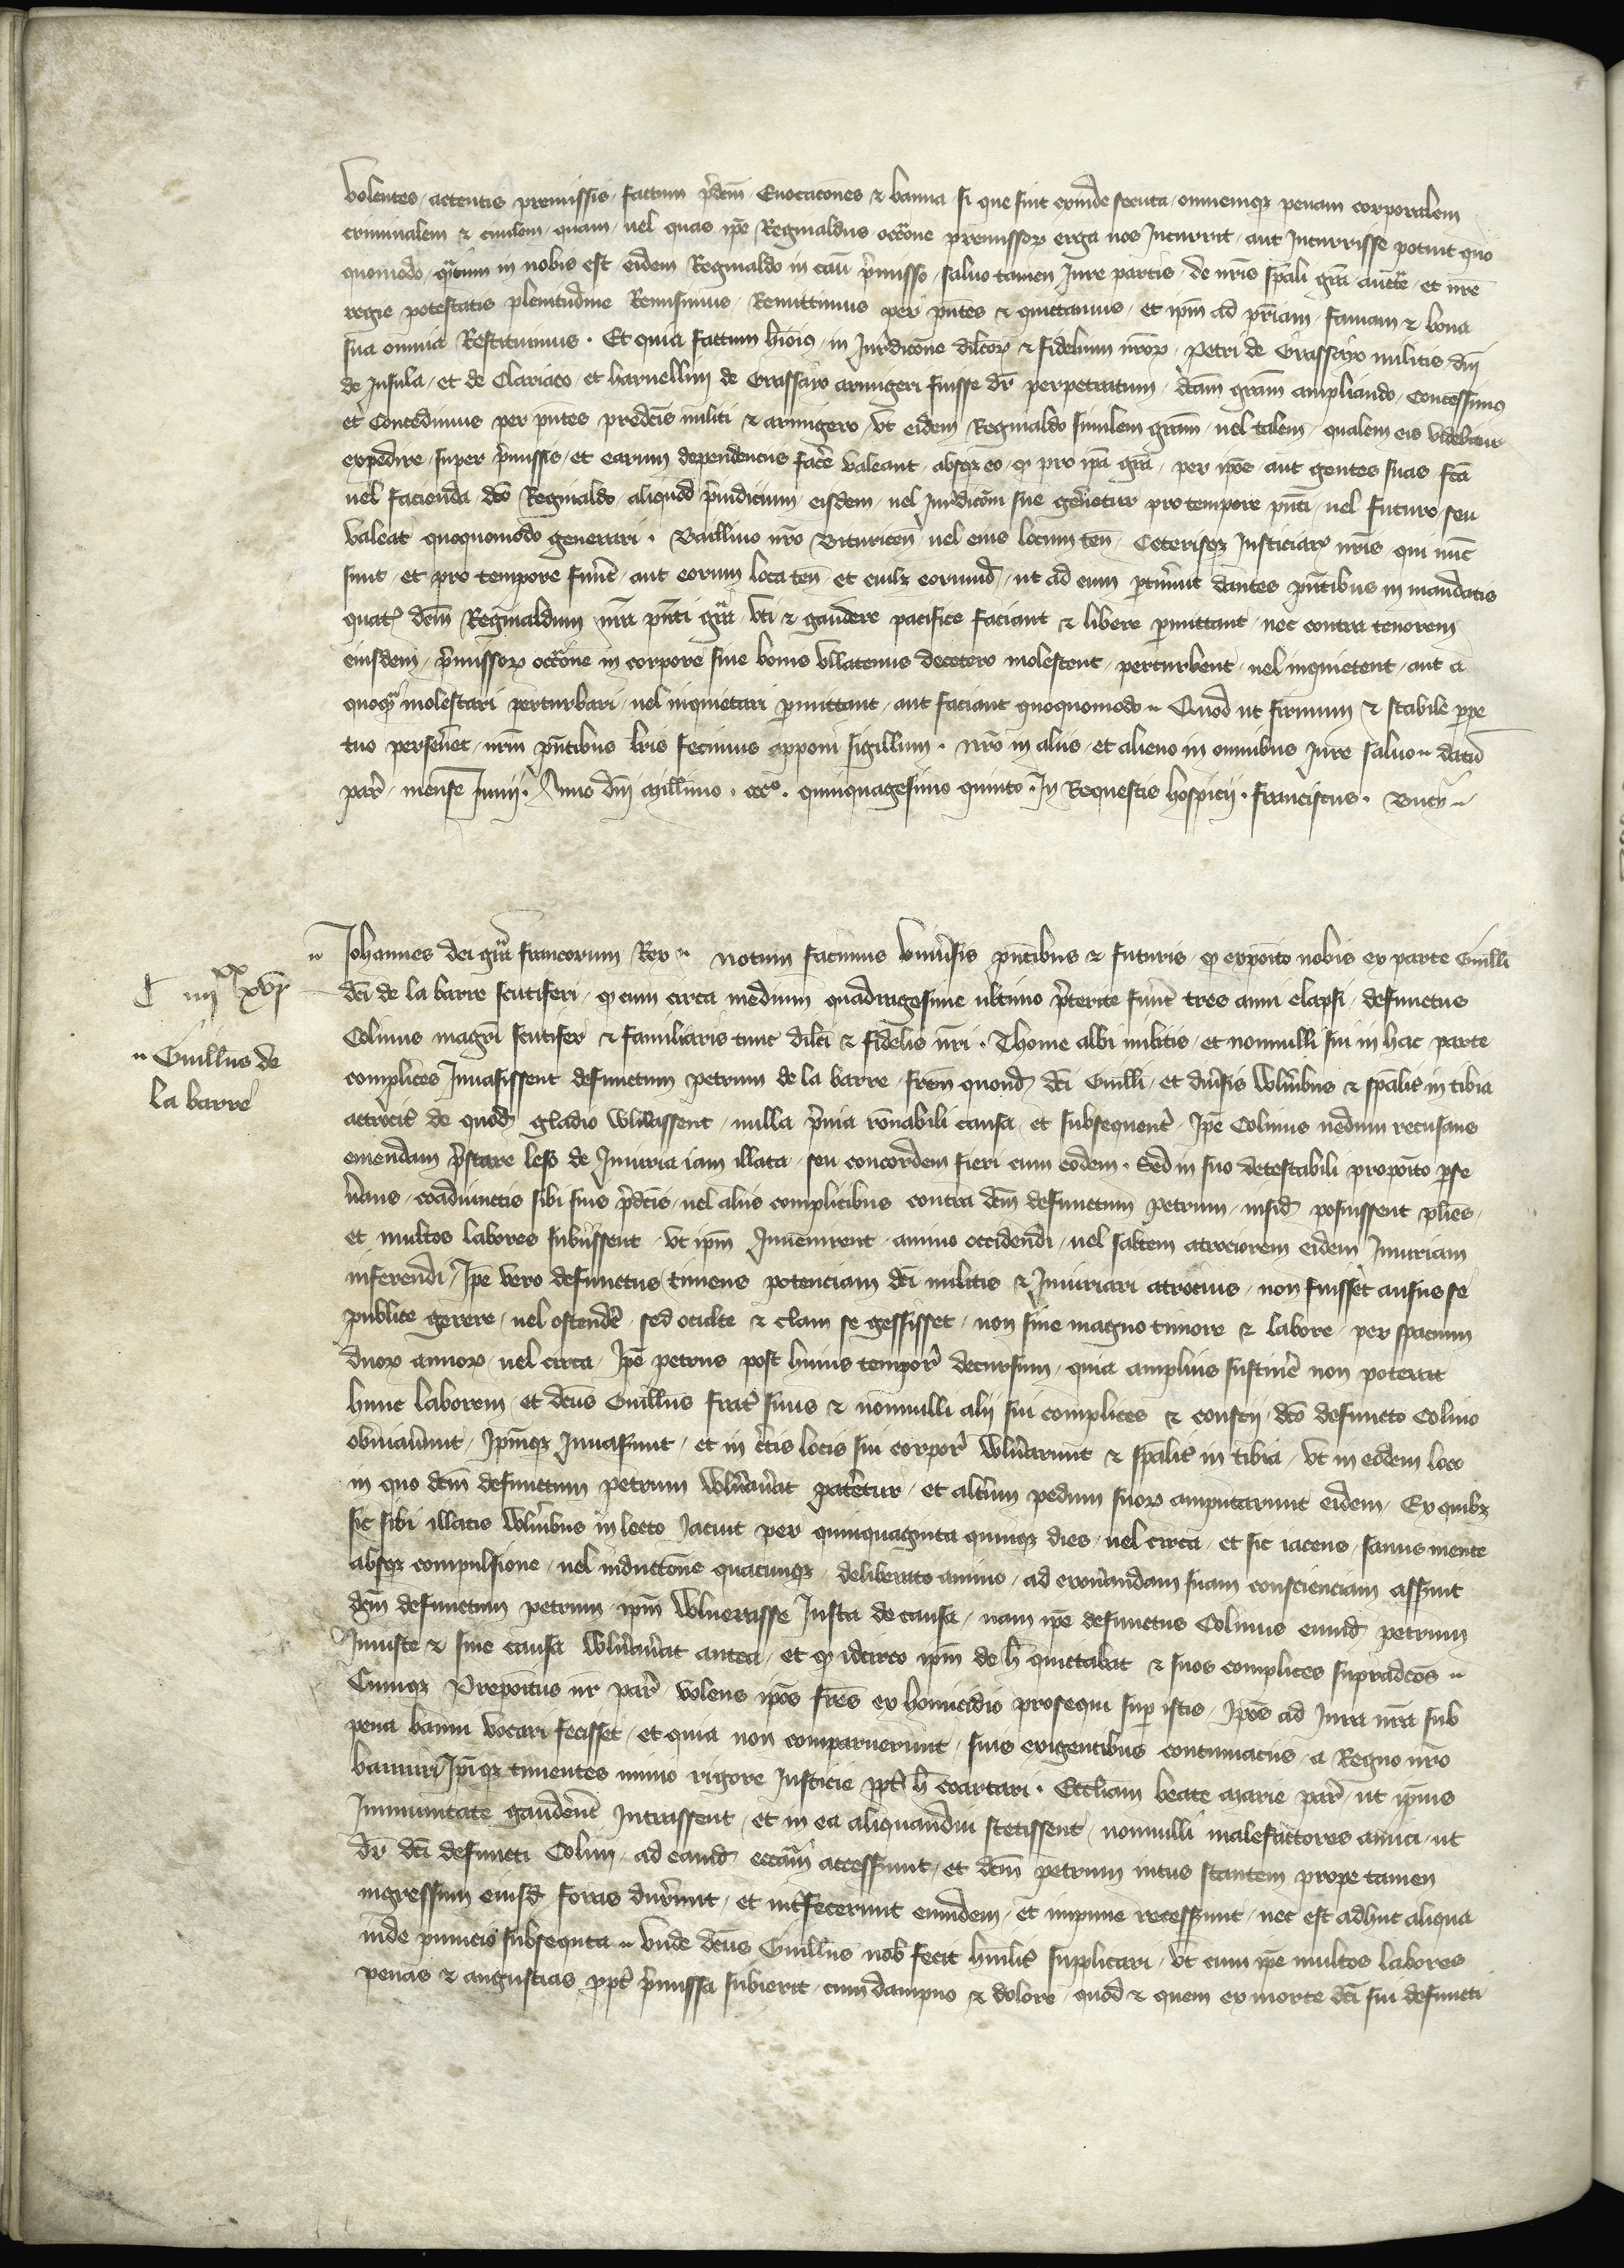 volentes attentis premissis factum p̃dcm̃ Euocacões & banna si que sint exinde secuta omnemqꝫ penam corporalem
criminalem & ciuilem quam uel quas ip̃e Reginaldus occõne premissoꝝ erga nos Incurrit aut Incurrisse potuit quo
quomodo qᵃtum in nobis est eidem Reginaldo in casũ p̃misso saluo tamen Jure partis de nrĩs sp̃ali grã auctẽ et nrẽ
regie potestatis plenitudine Remisimus Remittimus per pñtes & quittamus et ip̃m ad pr̃iam famam & bona
sua omnia Restituimus . Et quia factum hmõi in Jur̃dicõne dilcõꝝ & fidelium nr̃oꝝ Petri de Grassayo militis dñi
de Insula et de Clariaco et haruellini de Grassayo armigeri fuisse dr̃ perpetratum dcãm grãm ampliando Concessimus
et Concedimus per pñtes predcĩs militi & armigero vt eidem Reginaldo similem grãm uel talem qualem eis videbitur
expedire super p̃missis et earum dependenciis facẽ valeant absqꝫ eo ꝙ pro ip̃a grã per ip̃os aut gentes suas fcã
uel facienda dcõ Reginaldo aliquod p̃iudicium eisdem uel Jur̃dicõi sue gen̾etur pro tempore pñti uel futuro seu
valeat quoquomodo generari . Bailliuo nrõ Bituriceñ uel eius locum teñ Ceterisqꝫ Justiciar̃ nrĩs qui nũc
sunt et pro tempore fuer̃t aut eorum loca teñ et cuilꝫ eorumd̃ ut ad eum ptin̾uit dantes pñtibus in mandatis
quat̾ dcm̃ Reginaldum nrã pñti grã vti & gaudere pacifice faciant & libere pmittant nec contra tenorem
eiusdem p̃missoꝝ occõne in corpore siue bonis vllatenus decetero molestent perturbent uel inquietent aut a
quoqᵃ molestari perturbari uel inquietari pmittant aut faciant quoquomodo Quod ut firmum & stabile ppe
tuo perseuer̃et nrm̃ pñtibus lrĩs fecimus apponi sigillum . nrõ in aliis et alieno in omnibus Jure saluo datũ
par̃ mense Junij . Anno dñi millimo . cccº . quinquagesimo quinto . In Requestis hospicij . franciscus . Bucy
Johannes dei grã francorum Rex notum facimus vniu̾sis pñtibus & futuris ꝙ expoĩto nobis ex parte Guilli
dcĩ de la barre scutiferi ꝙ cum circa medium quadragesime ultimo p̃terite fuer̃t tres anni elapsi defunctus
Colinus magñi scutifer & familiaris tunc dilcĩ & fidelis nrĩ . Thome albi militis et nonnulli sui in hac parte
complices Inuasissent defunctum petrum de la barre frẽm quond̃ dcĩ Guilli et diu̾sis wln̾ibus & sp̃alit̾ in tibia
attrocit̾ de quod̃ gladio wln̾assent nulla p̃uia rõnabili causa et subsequent̾ Ip̃e Colinus nedum recusans
emendam p̃stare leso de Iniuria iam illata seu concordem fieri cum eodem . Sed in suo detestabili propoĩto pse
u̾ans coadiunctis sibi suis p̃dcĩs uel aliis complicibus contra dcm̃ defunctum petrum insid̃ posuissent plĩes
et multos labores subiissent vt ip̃m Inuenirent animo occidendi uel saltem atrociorem eidem Iniuriam
inferendi / Ip̃e vero defunctus timens potenciam dcĩ militis & Iniuriari atrocius non fuisset ausus se
publice gerere uel ostendẽ sed oculte & clam se gessisset non sine magno timore & labore per spacium
duoꝝ annoꝝ uel circa Ip̃e petrus post huius tempor̃ decursum quia amplius sustiner̃ non poterat
hunc laborem et dcũs Guill̃us frat̾ suus & nonnulli alij sui complices & conscij dcõ defuncto Colino
obuiauer̃unt Ip̃mqꝫ Inuaser̃unt et in cer̃tis locis sui corpor̃ wln̾arunt & sp̃alit̾ in tibia vt in eodem loco
in quo dcm̃ defunctum petrum wln̾au̾at patẽtur et alt̾um pedum suoꝝ amputarunt eidem Ex quibꝫ
sic sibi illatis wln̾ibus in lecto Jacuit per quinquaginta quinqꝫ dies uel circa et sic iacens sanus mente
absqꝫ compulsione uel inductiõne quacunqꝫ deliberato animo ad exon̾andam suam conscienciam asser̃uit
dcm̃ defunctum petrum ip̃m wlnerasse Justa de causa nam ip̃e defunctus Colinus eumd̃ petrum
Iniuste & sine causa wln̾au̾at antea et ꝙ idcirco ip̃m de h̃ quictabat & suos complices supradcõs
Cumqꝫ Prepoĩtus nr̃ par̃ volens ip̃os frẽs ex homicidio prosequi sup istis Ip̃os ad Jura nrã sub
pena banni vocari fecisset et quia non comparuerunt suis exigentibus contumaciis a Regno nrõ
banniri Ip̃iqꝫ timentes nimio rigore Justicie ppt̾ h̃ coartari . Eccl̃iam beate marie par̃ ut ip̃ius
Immunitate gaudẽnt Intrassent et in ea aliquandiu stetissent nonnulli malefactores amici ut
dr̃ dcĩ defuncti Colini ad eamd̃ eccl̃iam accesser̃unt et dcm̃ petrum intus stantem prope tamen
ingressum eiusd̃ foras duxer̃unt et int̾fecerunt eumdem et impune recesser̃unt nec est adhuc aliqua
inde punicio subsequta vnde dcũs Guill̃us nob̃ fecit humilit̾ supplicari vt cum ip̃e multos labores
penas & angustias ppt̾ p̃missa subierit cum dampno & dolore quod & quem ex morte dcĩ sui defuncti
C iiijˣˣ xvj
Guill̃us de
la barre